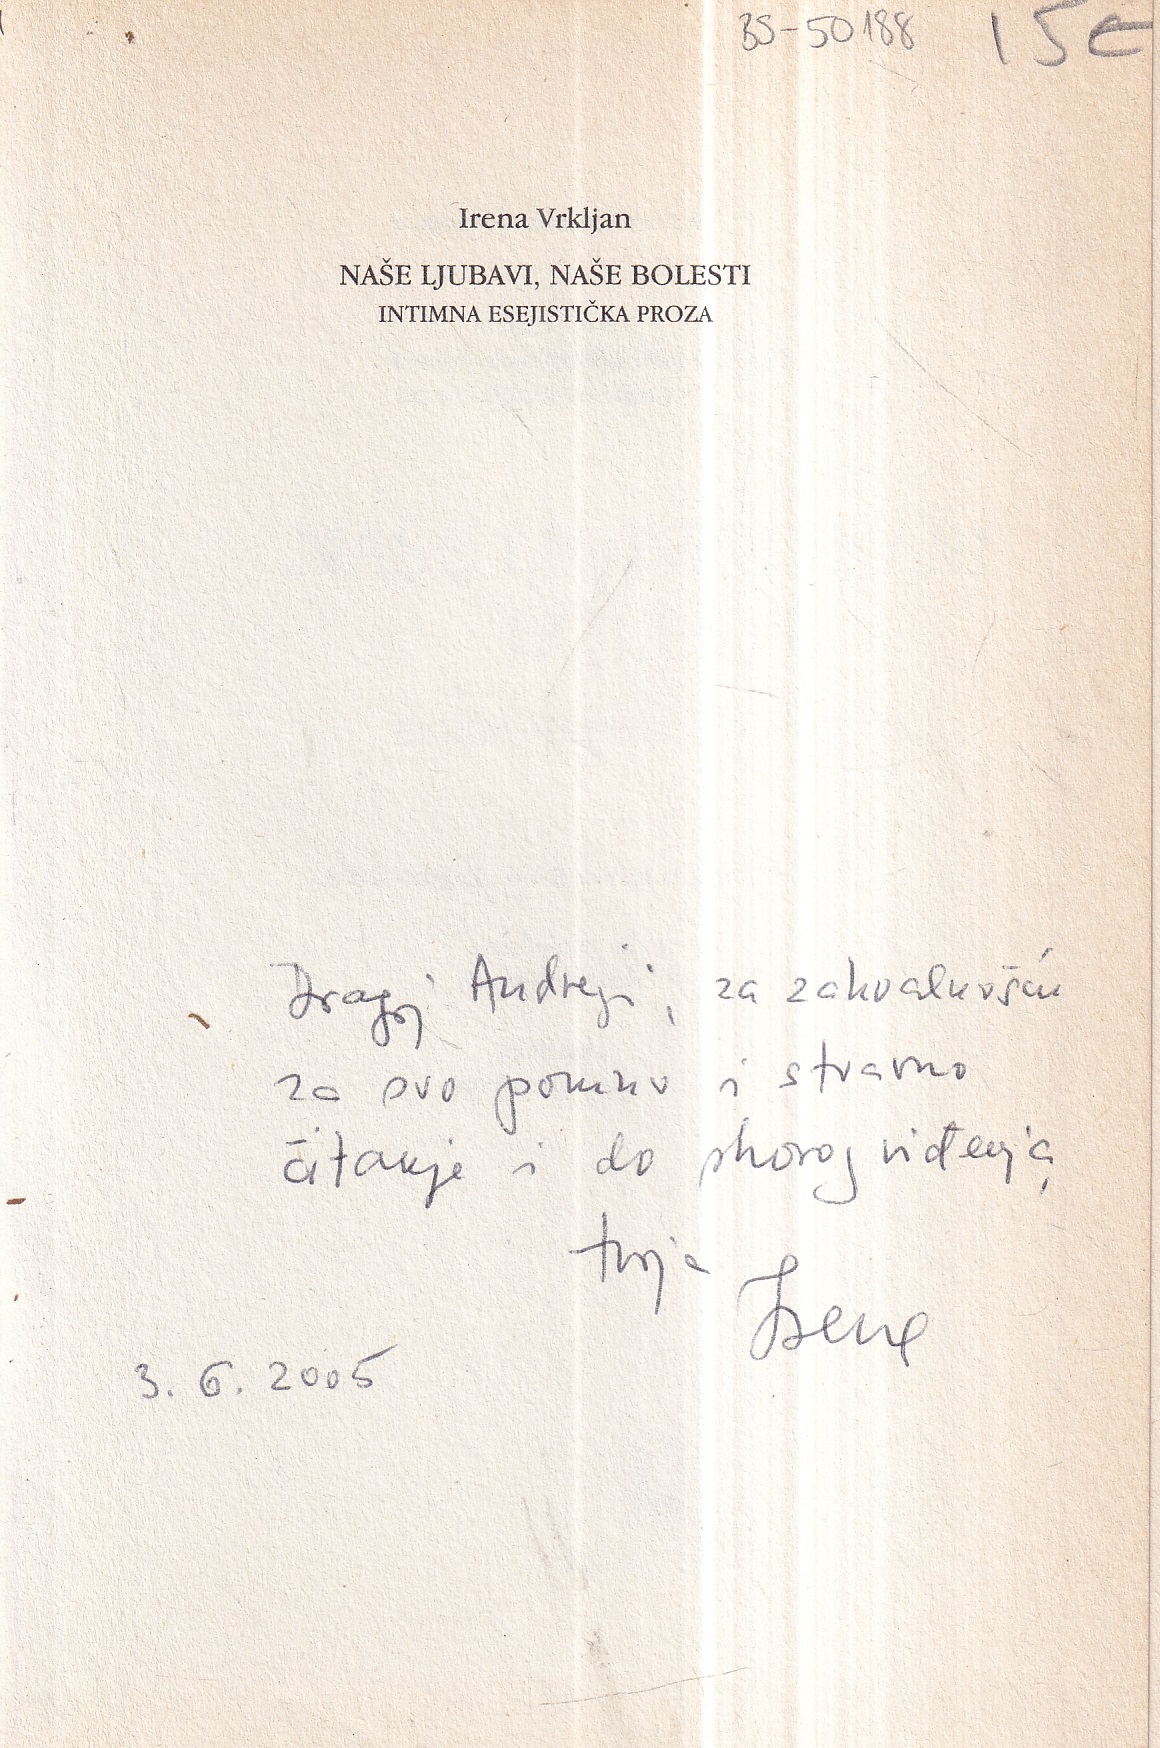 BS-50188 15€
Irena Vrkljan
NAŠE LJUBAVI, NAŠE BOLESTI
INTIMNA ESEJISTIČKA PROZA
Dragoj Andreji, za
za svo i stvarno
čitanje i do skorog viđenja,
tvoja Irena
3. 6. 2005